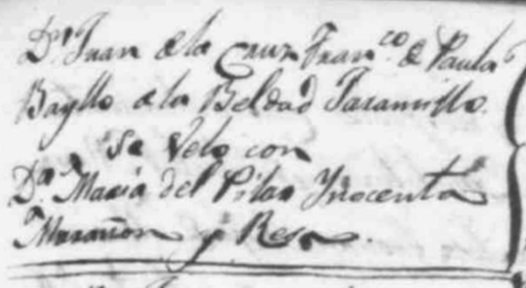 Dn Juan de la Cruz Franco de Paula
Bayllo de la Beldad Jaramillo.
Se Velo con
Da Maria del Pilar Ynocenta
Marañon y Resa.